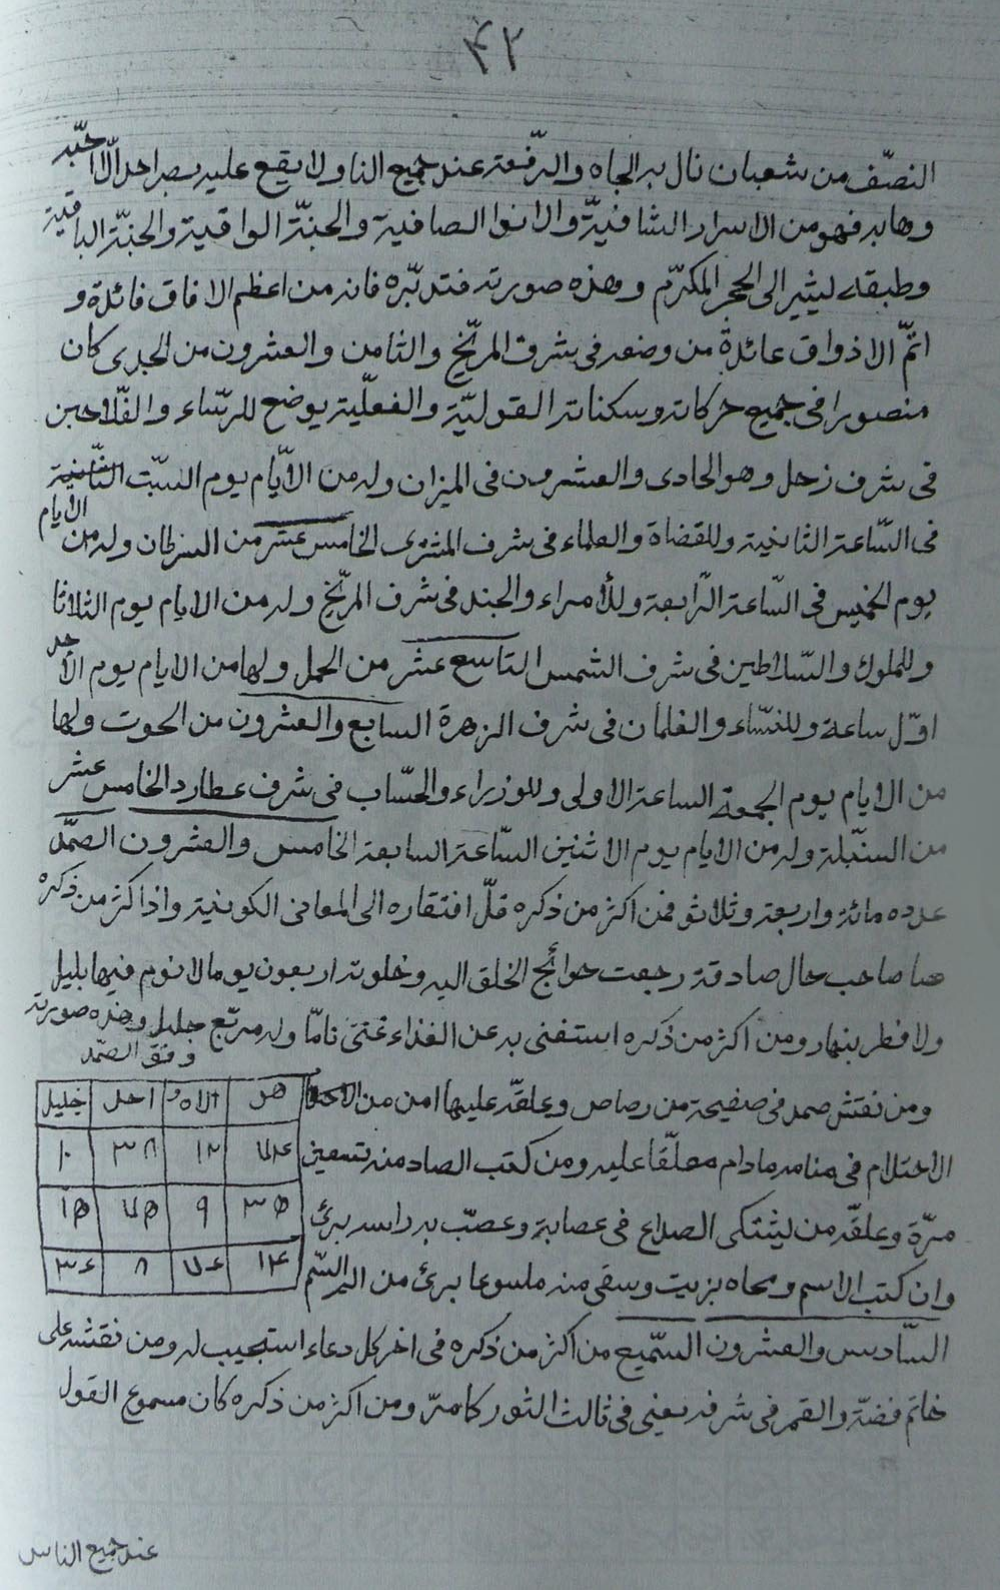 ٤٢
النصّف من شعبان نال به الجاه والرّفعة عند جميع النا ولا يقع عليه بصر احد الّا احبّه
وهابه فهو من الاسرار الشافيّة والانوا الصافية والجنّة الواقية والجنّة الباقية
وطبقه ليثير الى الحجر المكرّم وهذه صورته فتدبّره فانه من اعظم الافاق فائدة و
اتمّ الاذواق عائدة من وضعه فى شرف المرّيخ والثامن والعشرون من الجدى كان
منصورا فى جميع حركاته وسكناته القوليّة والفعليّة يوضح للرّساء والفلّاحين
فى شرف زحل وهو الحادى والعشرون فى الميزان وله من الايّام يوم السّبت الثّانية
فى السّاعة الثانية وللقضاة والعلماء فى شرف المشترى الخامس عشر من السرطان وله من الايام
يوم الخميس فى السّاعة الرّابعة وللأمراء والجند فى شرف المرّيخ وله من الايام يوم الثلاثا
وللملوك والسّلاطين فى شرف الشمس التاسع عشر من الحمل ولها من الايام يوم الأحد
اوّل ساعة وللنسّاء والغلمان فى شرف الزهرة السابع والعشرون من الحوت ولها
من الايام يوم الجمعة الساعة الاولى وللوزراء والحسّاب فى شرف عطارد الخامس عشر
من السنّبلة وله من الايام يوم الاثنين السّاعة السابعة الخامس والعشرون الصمّد
عدده مائة واربعة وثلاثو فمن اكثر من ذكره قلّ افتقاره الى المعانى الكونية واذا اكثر من ذكره
صاحب حال صادقة رجعت حوائج الخلق اليه وخلوته اربعون يوما لا نوم فيها بليل
ولا فطر بنهار ومن اكثر من ذكره استغنى به عن الغذاء غنى تامّا وله مربّع جليل وهذه صورته
وفق الصمّد
ومن نقش صمد فى صفيحة من رصاص وعلقّه عليها امن من
الاحتلام فى منامه مادام معلّقا عليه ومن كتب الصاد منه تسعين
مرّة وعلقّه من ليشتكى الصلاع فى عصابة وعصّب به راسه برئ
وان كتب الاسم ومحاه بزيت وسقى منه ملسوعا برئ من السّم
هو الاه و احد جليل
١٢ ٣٨ ١٠
٣٥ ٩
١٤ ٨
السّادس والعشرون السّميع من اكثر من ذكره فى اخر كل دعاء استجيب له ومن نقشه على
خاتم فضّة والقمر فى شرفه يعنى فى ثالث الثور كامرّ ومن اكثر من ذكره كان مسموع القول
عند جميع الناس